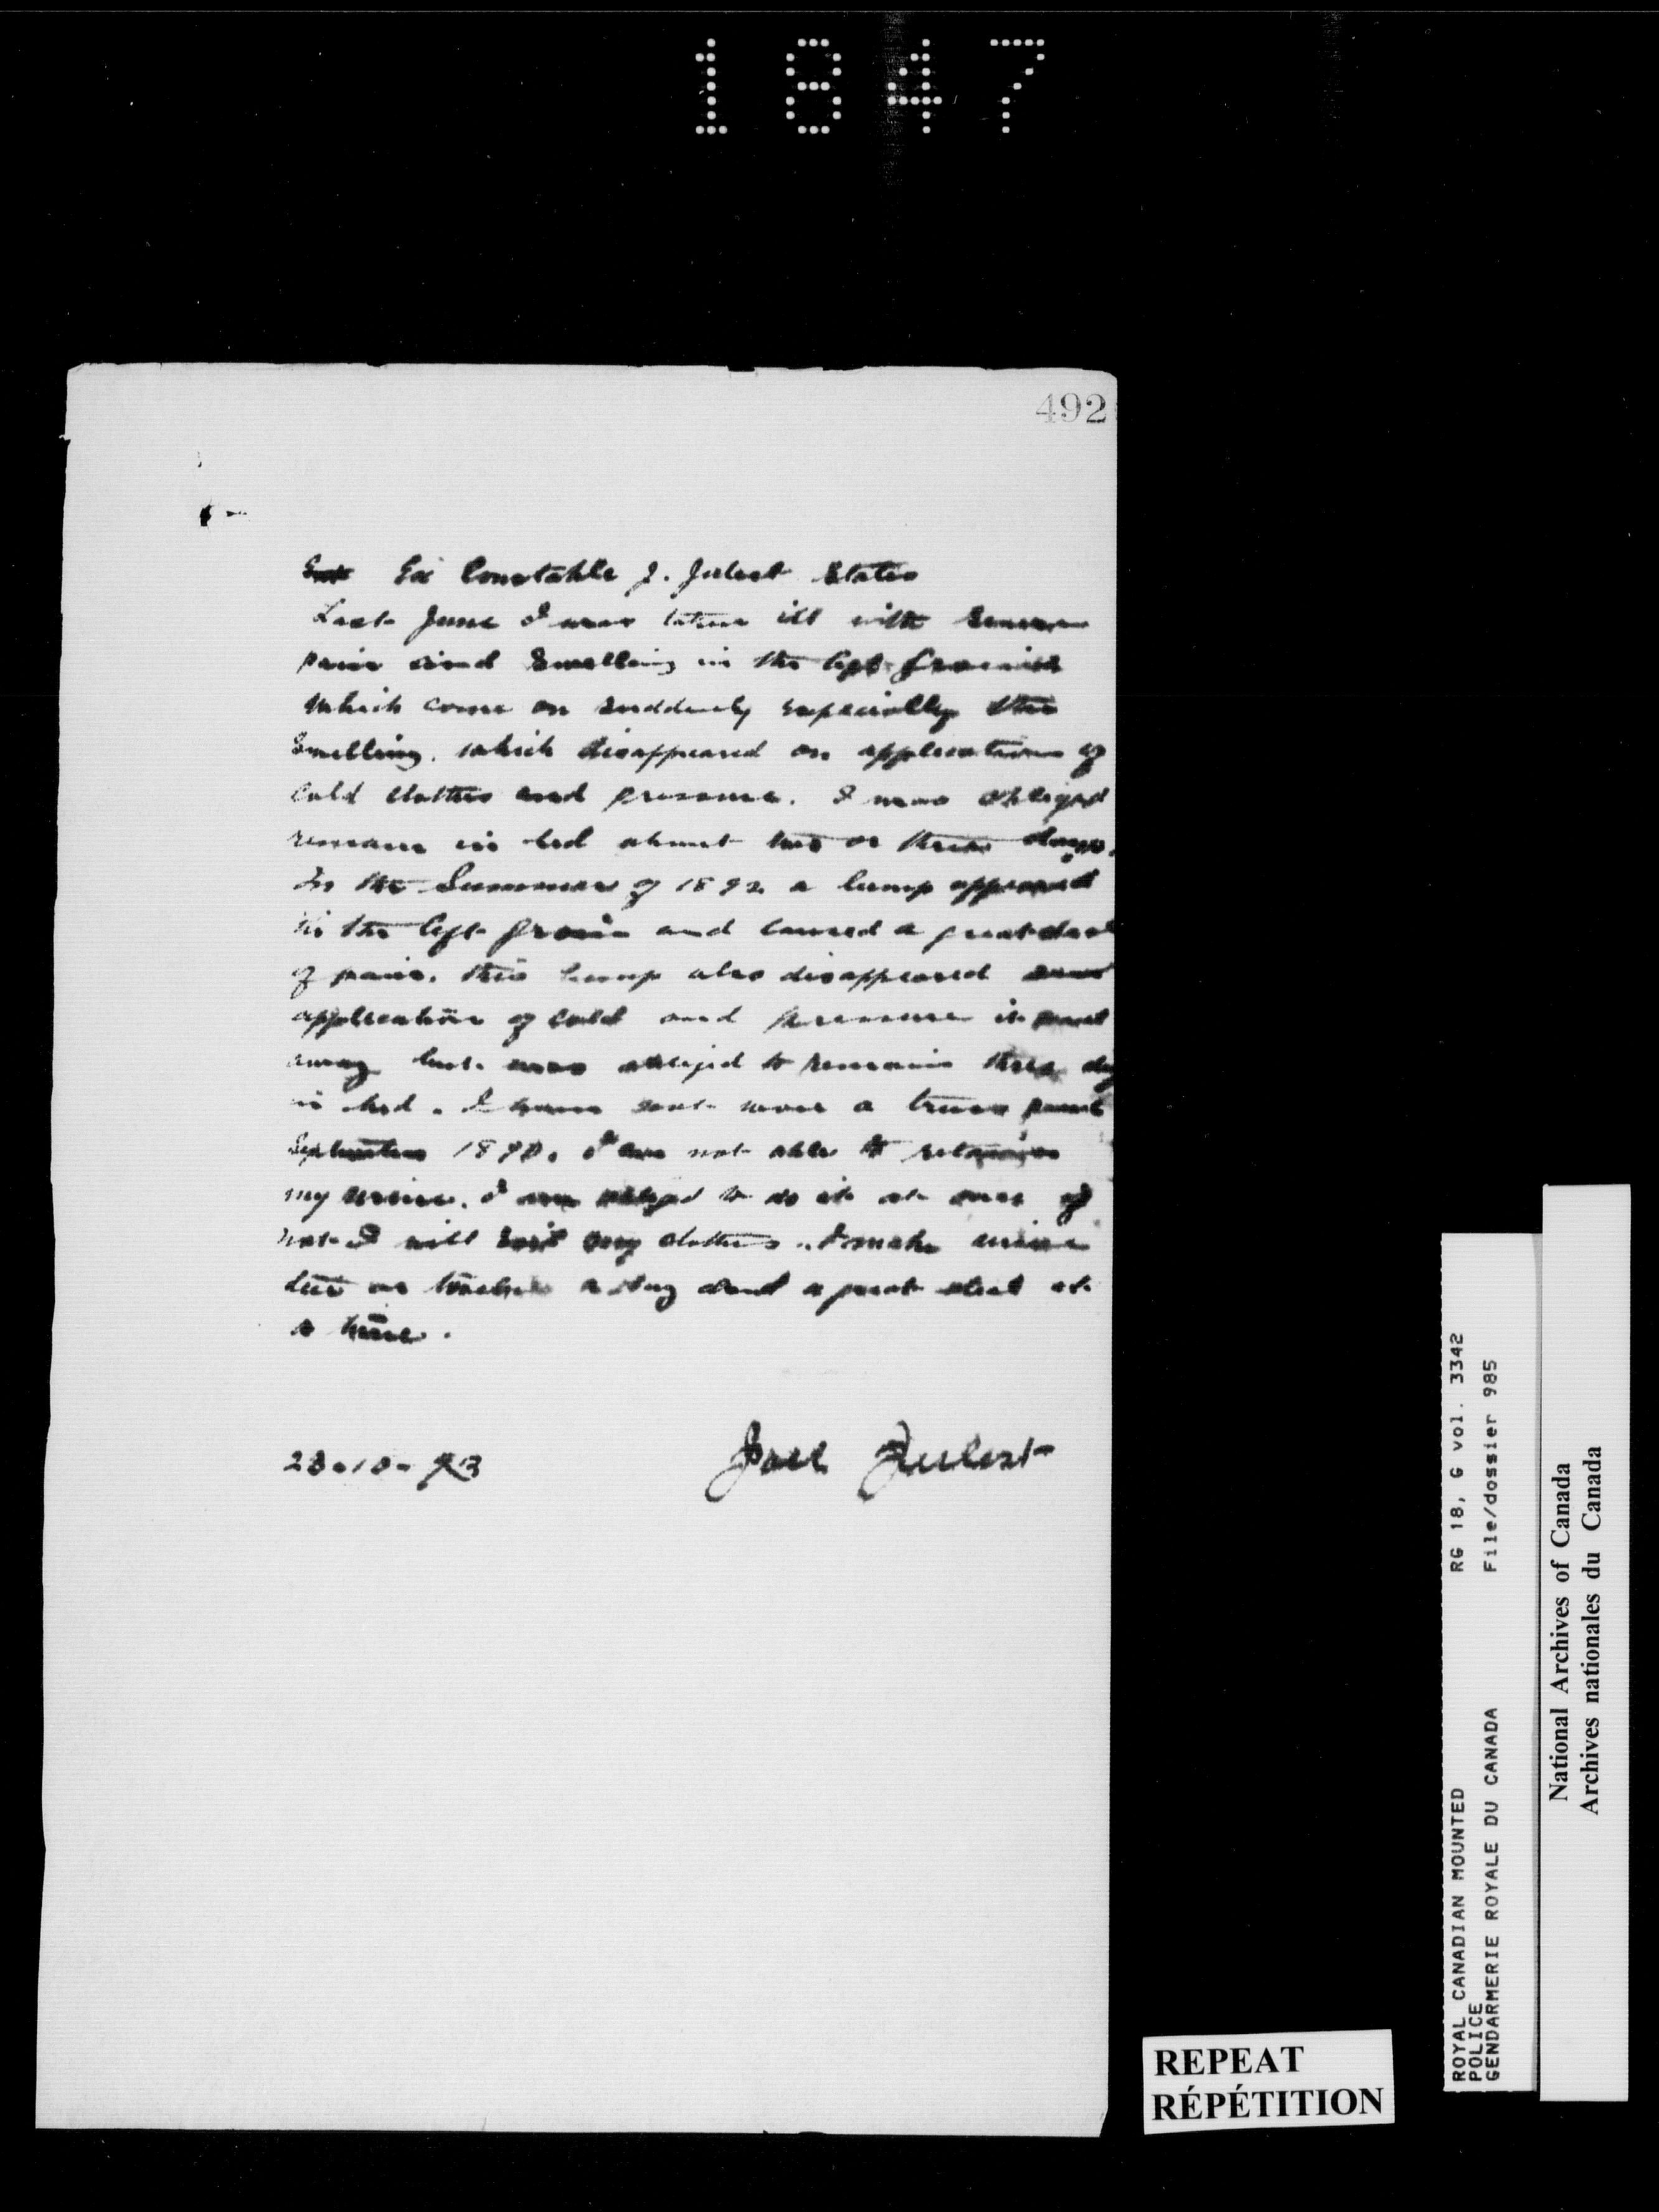 1847
492
Ex Constable J. Jubert States
Last June I was taken ill with severe
pain and swelling in the left groin
which come on suddenly especially the
swelling. which disappeared on application of
cold clothes and pressure. I was obliged
remain in bed about two or three days.
In the Summer of 1892 a lump appeared
in the left groin and caused a great deal
of pain. this lump also disappeared
application of cold and pressure it
away but was obliged to remain three day
in bed. I have wore a truss
September 1890. I am not able to retain
my urine. I am obliged to do it at once if
not I will soil my clothes. I make urine
ten or twelve a day and a great deal at
a time.
23-10-93
Jubert
RG 18, G vol. 3342
File/dossier 985
ROYAL CANADIAN MOUNTED
POLICE
GENDARMERIE ROYALE DU CANADA
National Archives of Canada
Archives nationales du Canada
REPEAT
RÉPÉTITION